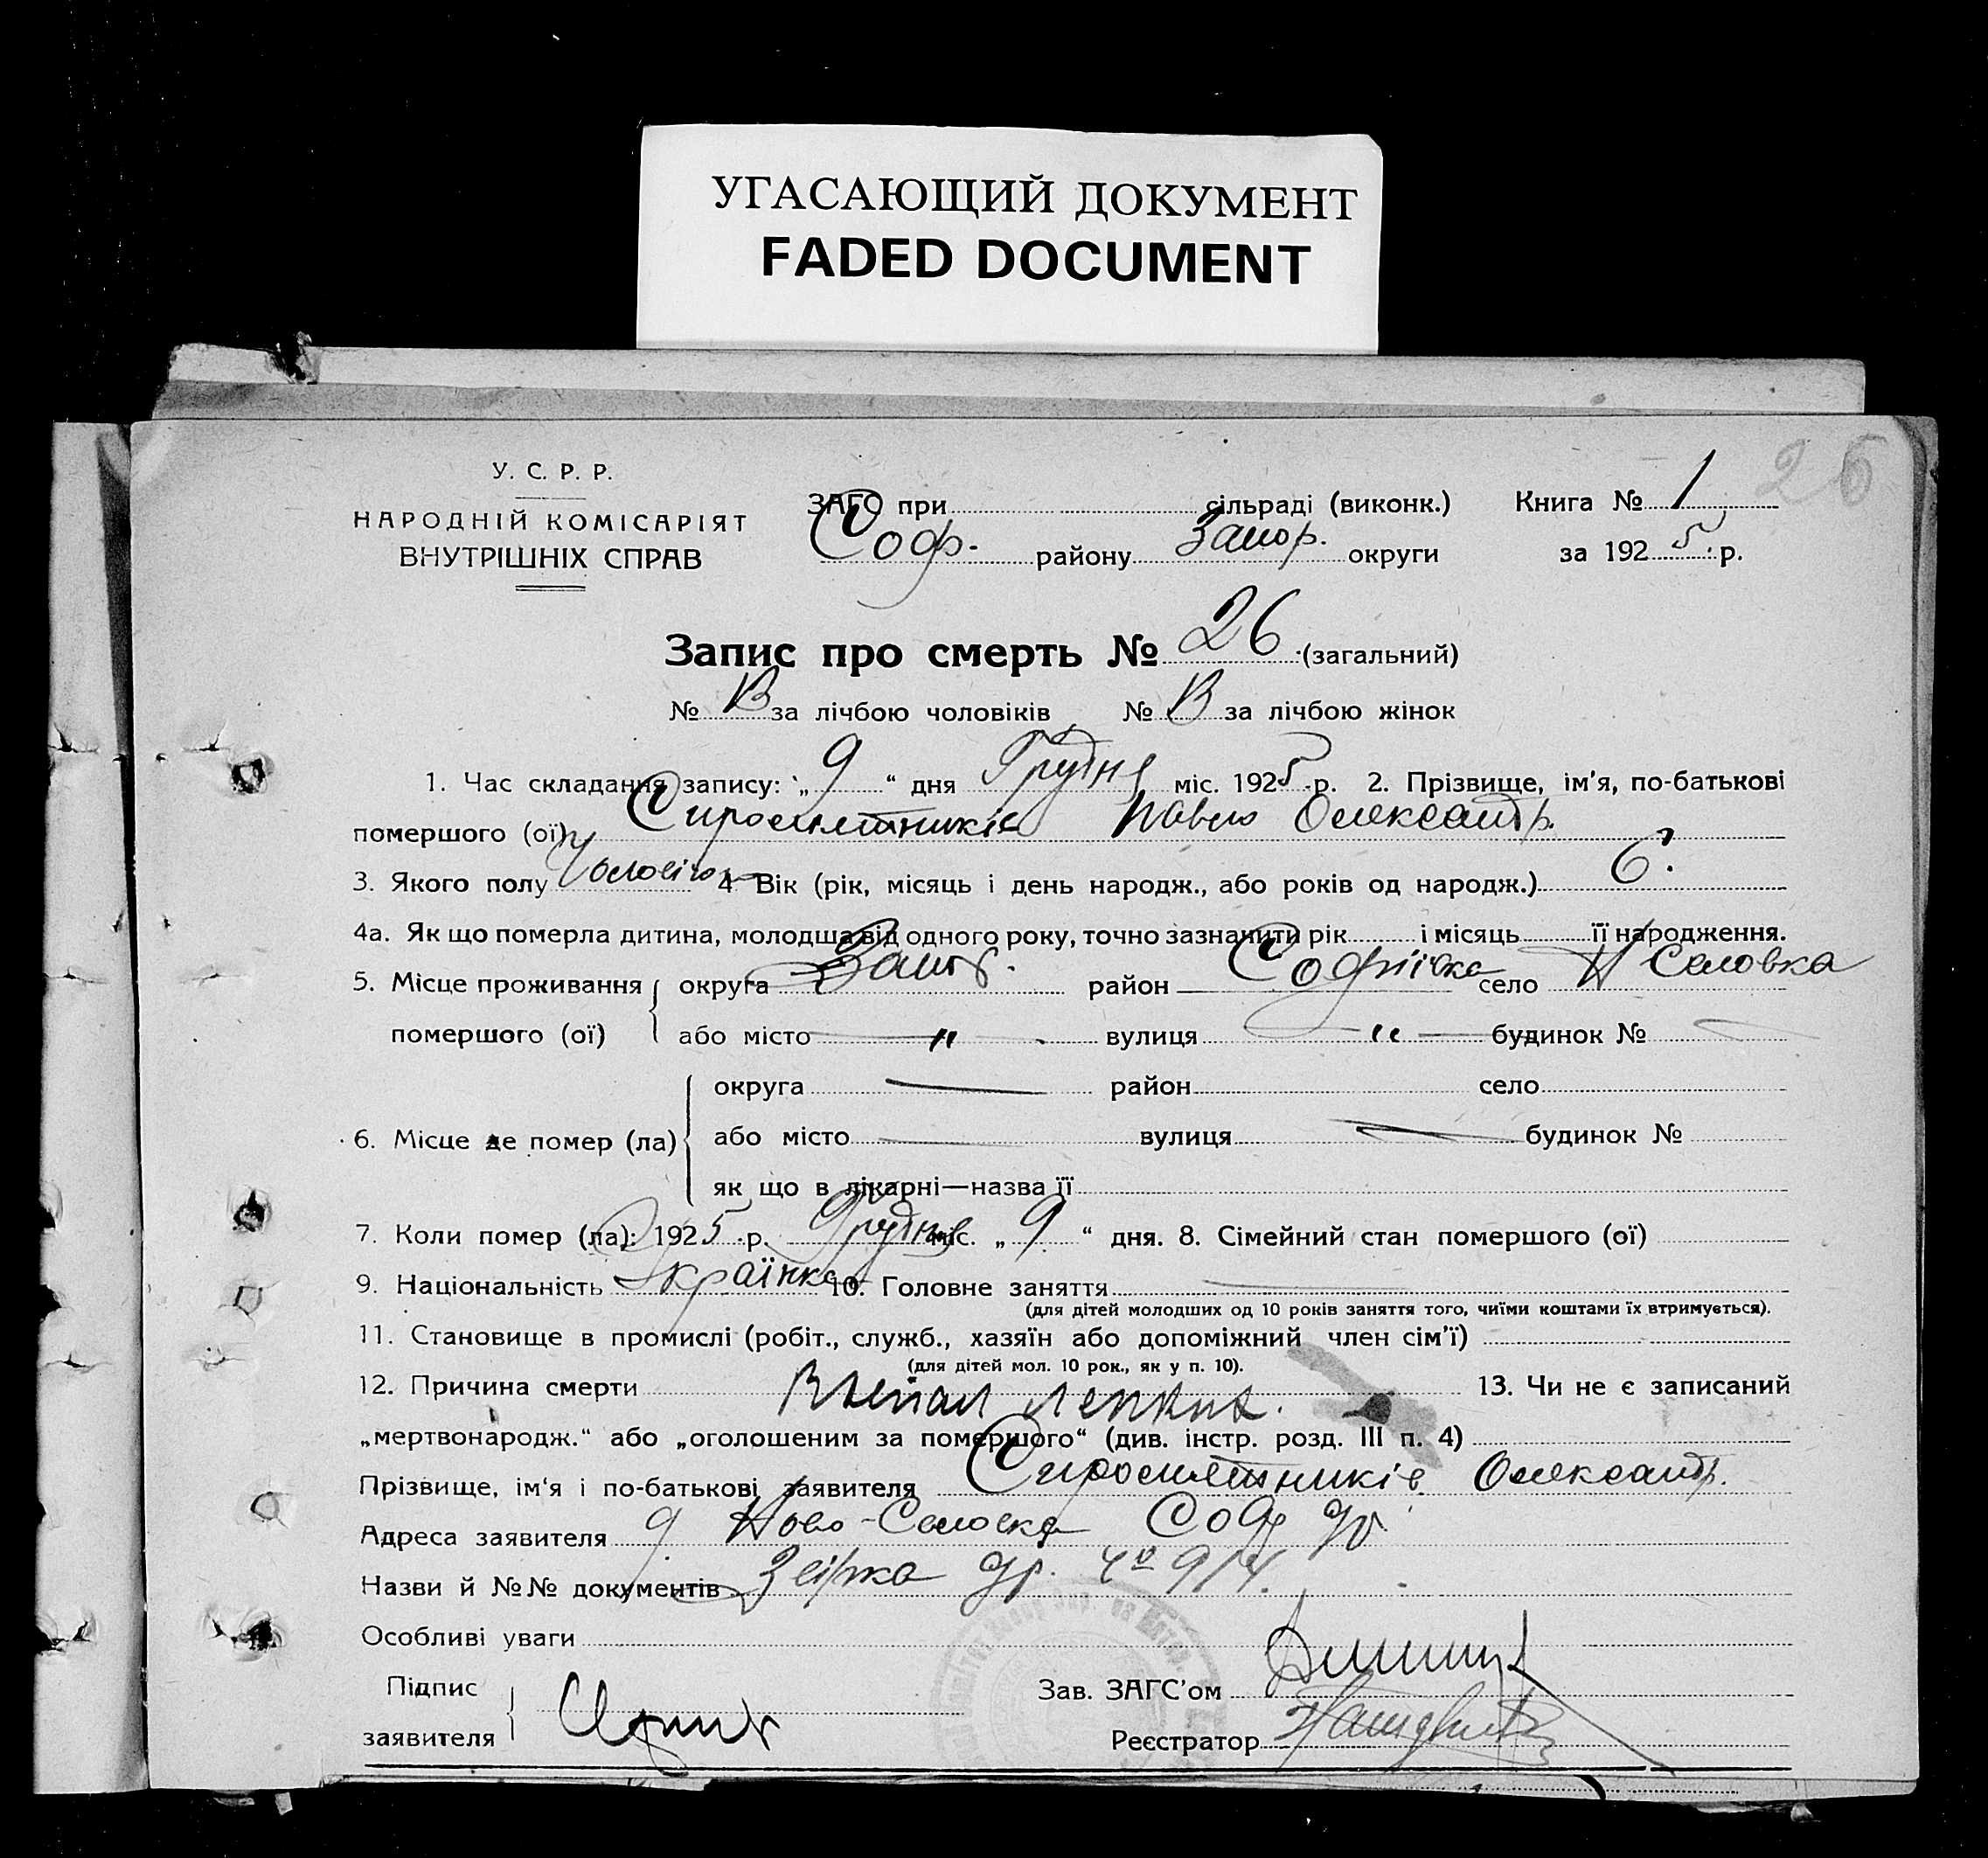 УГАСАЮЩИЙ ДОКУМЕНТ
FADED DOCUMENT
26
У. С. Р. Р.
НАРОДНІЙ КОМІСАРІЯТ
ВНУТРІШНІХ СПРАВ
ЗАГС при сільраді (виконк.) Книга № 1
Соф. району Запор. округи за 1925 р.
Запис про смерть № 26 (загальний)
№ за лічбою чоловіків № за лічбою жінок
1. Час складання запису: „9“ дня Грудня міс. 1925 р. 2. Прізвище, ім'я, по-батькові
помершого (ої) Сиросилятників Павло Олександр.
3. Якого полу Чоловічо 4 Вік (рік, місяць і день народж., або років од народж.) 6
4а. Як що померла дитина, молодша від одного року, точно зазначити рік і місяць її народження.
5. Місце проживання округа Запор. район Софіївка село НСеловка
помершого (ої) або місто — „ — вулиця — „ — будинок №
округа — район село
6. Місце де помер (ла) або місто — вулиця — будинок №
як що в лікарні—назва її
7. Коли помер (ла): 1925 р. Грудня міс. „9“ дня. 8. Сімейний стан помершого (ої)
9. Національність Українка 10. Головне заняття —
(для дітей молодших од 10 років заняття того, чиїми коштами їх втримується).
11. Становище в промислі (робіт., служб., хазяїн або допоміжний член сім'ї)
(для дітей мол. 10 рок., як у п. 10).
12. Причина смерти 13. Чи не є записаний
„мертвонародж.“ або „оголошеним за помершого“ (див. інстр. розд. III п. 4)
Прізвище, ім'я і по-батькові заявителя Сиросилятників Олександр.
Адреса заявителя Ново-Селовка Соф
Назви й №№ документів
Особливі уваги
Підпис Зав. ЗАГС'ом
заявителя Реєстратор